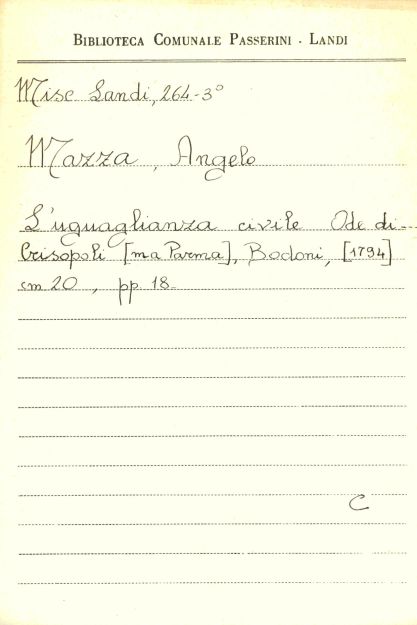 BIBLIOTECA COMUNALE PASSERINI - LANDI
Misc Landi, 264-3°
Mazza, Angelo
L'uguaglianza civile Ode di...
Crisopoli [ma Parma], Bodoni, [1794]
cm 20, pp. 18.
C